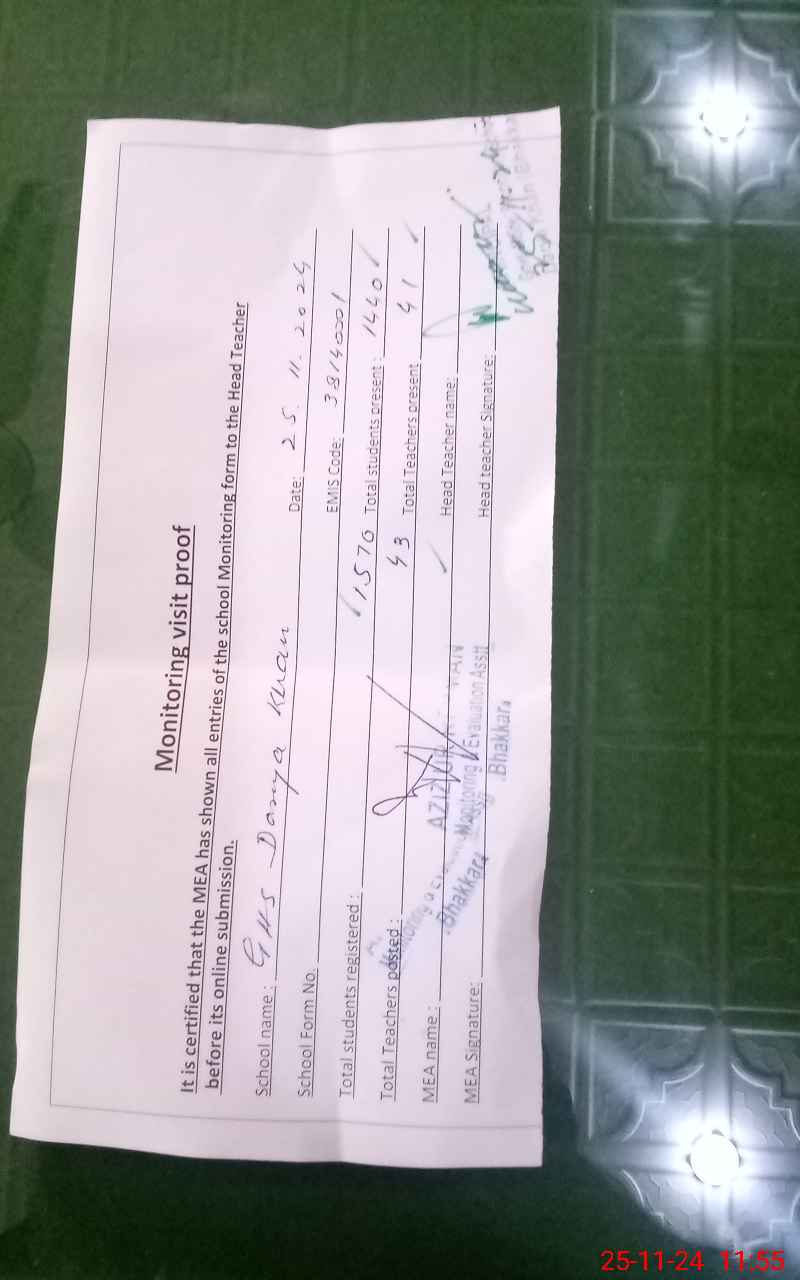 Monitoring visit proof
It is certified that the MEA has shown all entries of the school Monitoring form to the Head Teacher
before its online submission.
School name : GHS Darya Khan Date: 25. 11. 2024
School Form No. EMIS Code: 38140001
Total students registered : 1570 Total students present : 1440
Total Teachers posted : 43 Total Teachers present 41
MEA name : Head Teacher name:
MEA Signature: Head teacher Signature:
Monitoring Evaluation Asstt
Bhakkar
Bhakkar
25-11-24 11:55